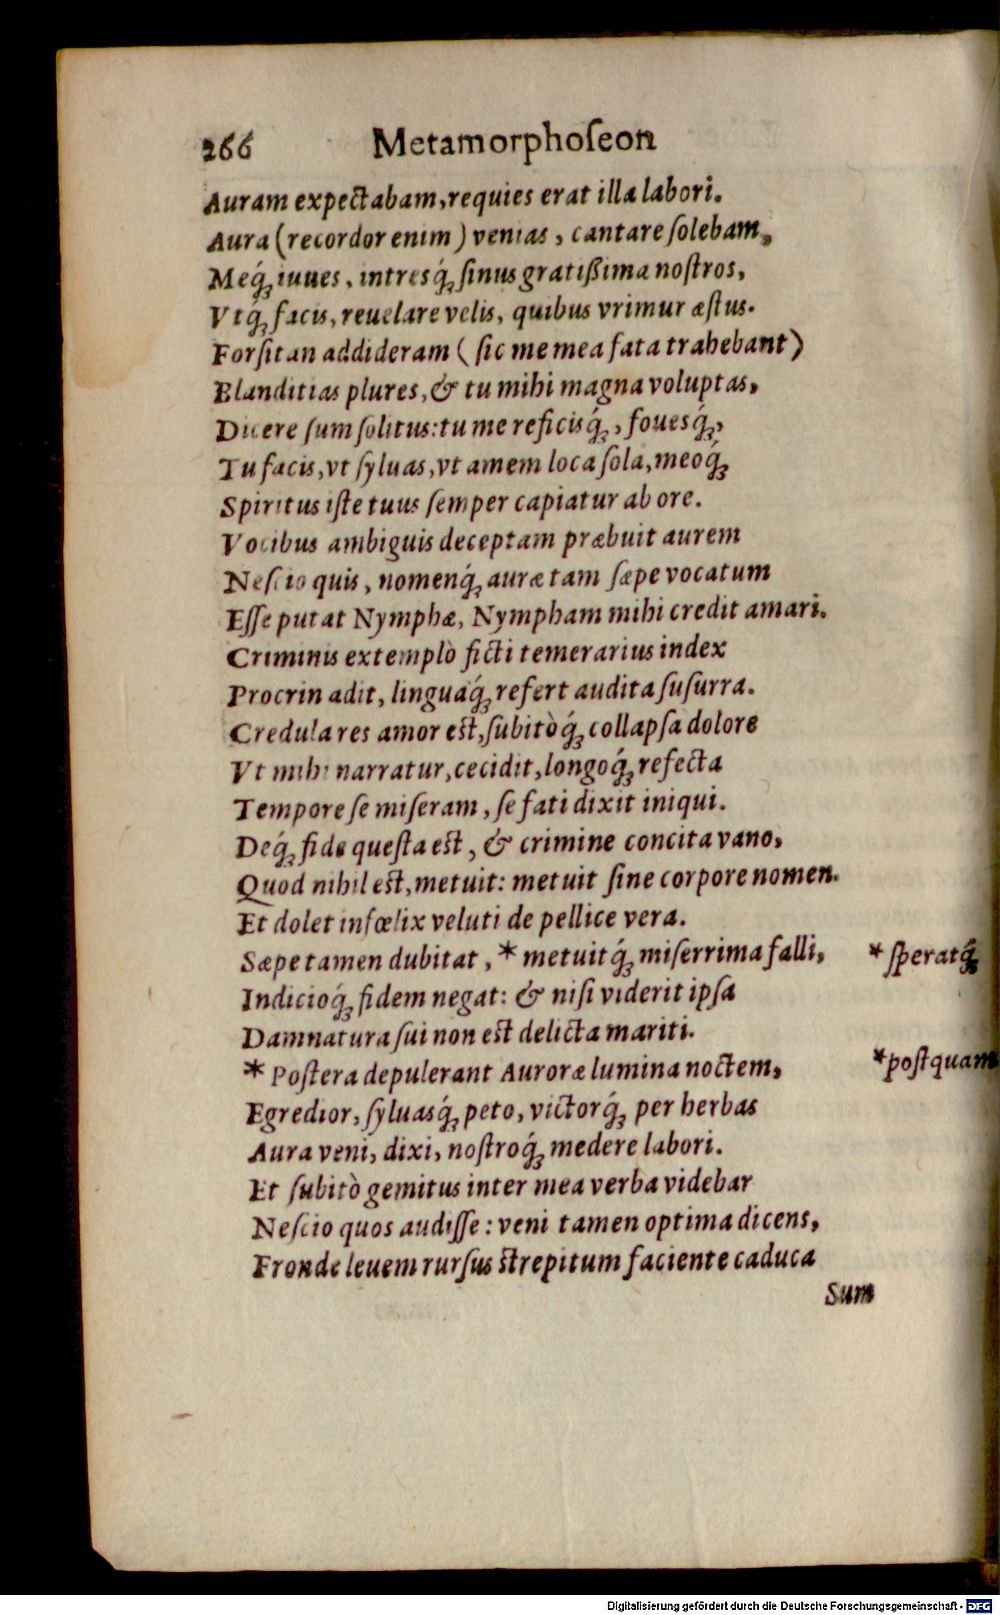 266 Metamorphoſeon
Auram expectabam, requies erat illa labori.
Aura (recordor enim) venias, cantare ſolebam,
Meq́ꝫ iuues, intresq́ꝫ ſinus gratißima noſtros,
Vtq́ꝫ facis, reuelare velis, quibus vrimur æſtus.
Forſitan addideram (ſic me mea fata trahebant)
Blanditias plures, & tu mihi magna voluptas,
Dicere ſum ſolitus: tu me reficisq́ꝫ, fouesq́ꝫ,
Tu facis, vt ſyluas, vt amem loca ſola, meoq́ꝫ
Spiritus iſte tuus ſemper capiatur ab ore.
Vocibus ambiguis deceptam præbuit aurem
Neſcio quis, nomenq́ꝫ auræ tam ſæpe vocatum
Eſſe putat Nymphæ, Nympham mihi credit amari.
Criminis extemplò ficti temerarius index
Procrin adit, linguaq́ꝫ refert audita ſuſurra.
Credula res amor est, ſubitòq́ꝫ collapſa dolore
Vt mihi narratur, cecidit, longoq́ꝫ refecta
Tempore ſe miſeram, ſe fati dixit iniqui.
Deq́ꝫ fide queſta est, & crimine concita vano,
Quod nihil est, metuit: metuit ſine corpore nomen.
Et dolet infœlix veluti de pellice vera.
Sæpe tamen dubitat, * metuitq́ꝫ miſerrima falli, * ſperatq́ꝫ
Indicioq́ꝫ fidem negat: & niſi viderit ipſa
Damnatura ſui non est delicta mariti.
* Poſtera depulerant Auroræ lumina noctem, * poſtquam
Egredior, ſyluasq́ꝫ peto, victorq́ꝫ per herbas
Aura veni, dixi, noſtroq́ꝫ medere labori.
Et ſubitò gemitus inter mea verba videbar
Neſcio quos audiſſe: veni tamen optima dicens,
Fronde leuem rurſus strepitum faciente caduca
Sum
Digitalisierung gefördert durch die Deutsche Forschungsgemeinschaft - DFG